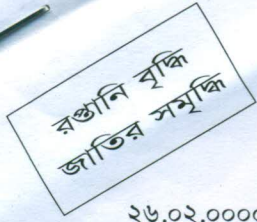 রপ্তানি বৃদ্ধি
জাতির সমৃদ্ধি
২৬.০২.০০০০